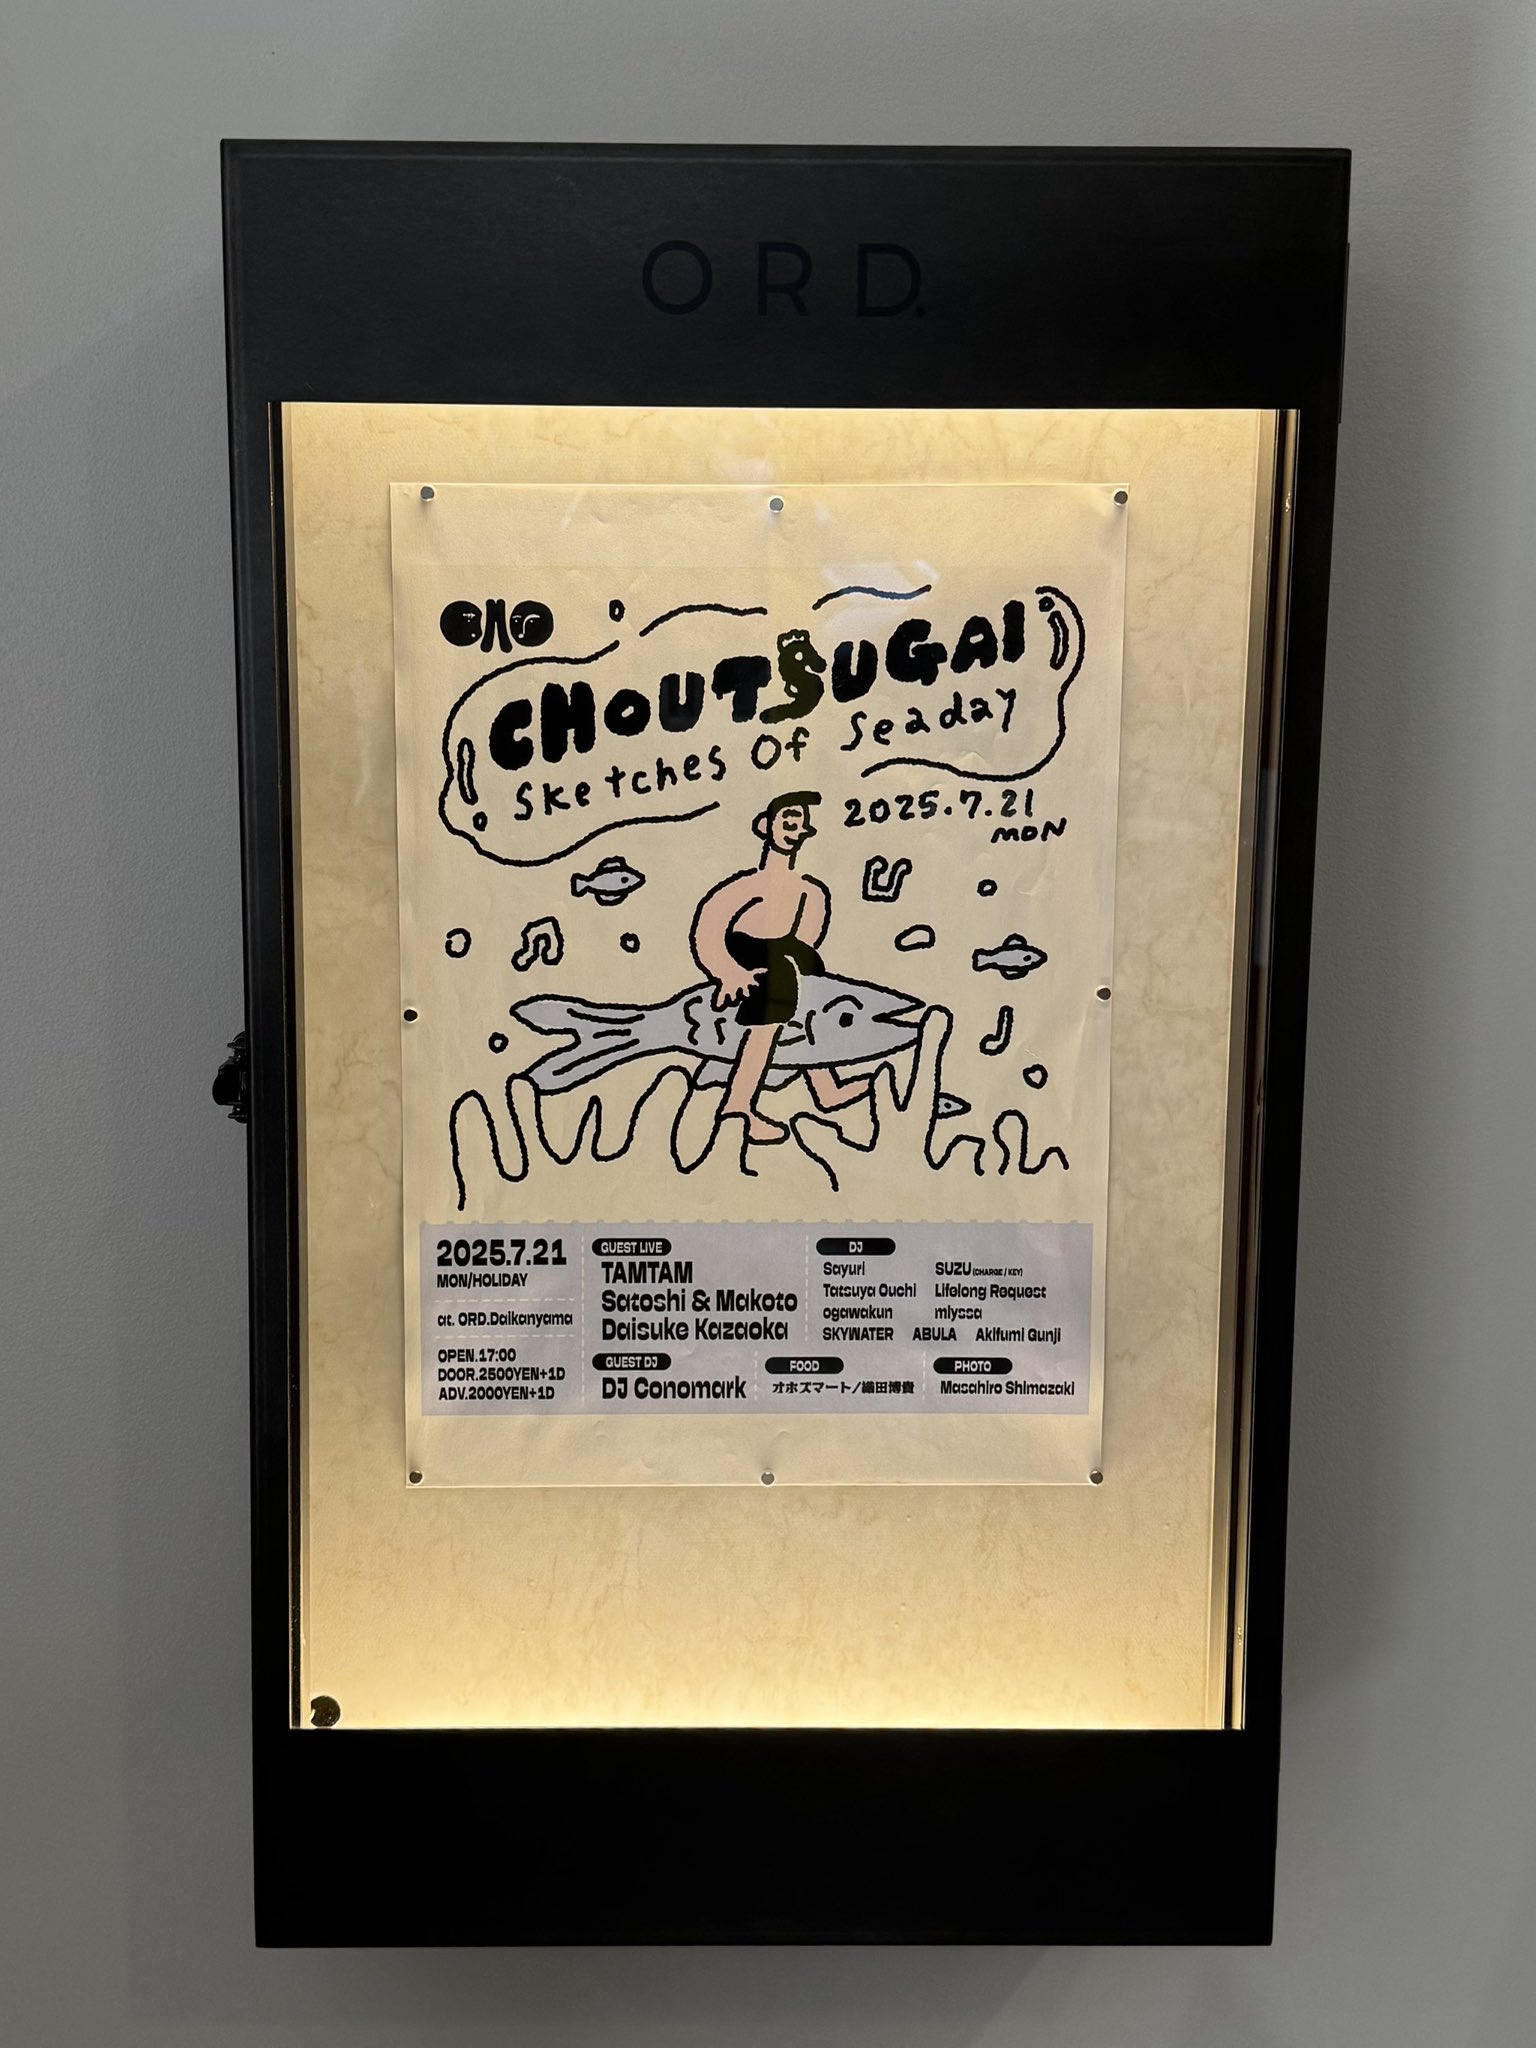 ORD.
CHOUTSUGAI
Sketches Of Seaday
2025.7.21
MON
2025.7.21
MON/HOLIDAY
at. ORD.Daikanyama
OPEN.17:00
DOOR.2500YEN+1D
ADV.2000YEN+1D
GUEST LIVE
TAMTAM
Satoshi & Makoto
Daisuke Kazaoka
GUEST DJ
DJ Conomark
DJ
Sayuri SUZU(CHARGE / KEY)
Tatsuya Ouchi Lifelong Request
ogawakun miyssa
SKYWATER ABULA Akifumi Gunji
FOOD
オホズマート/織田博貴
PHOTO
Masahiro Shimazaki